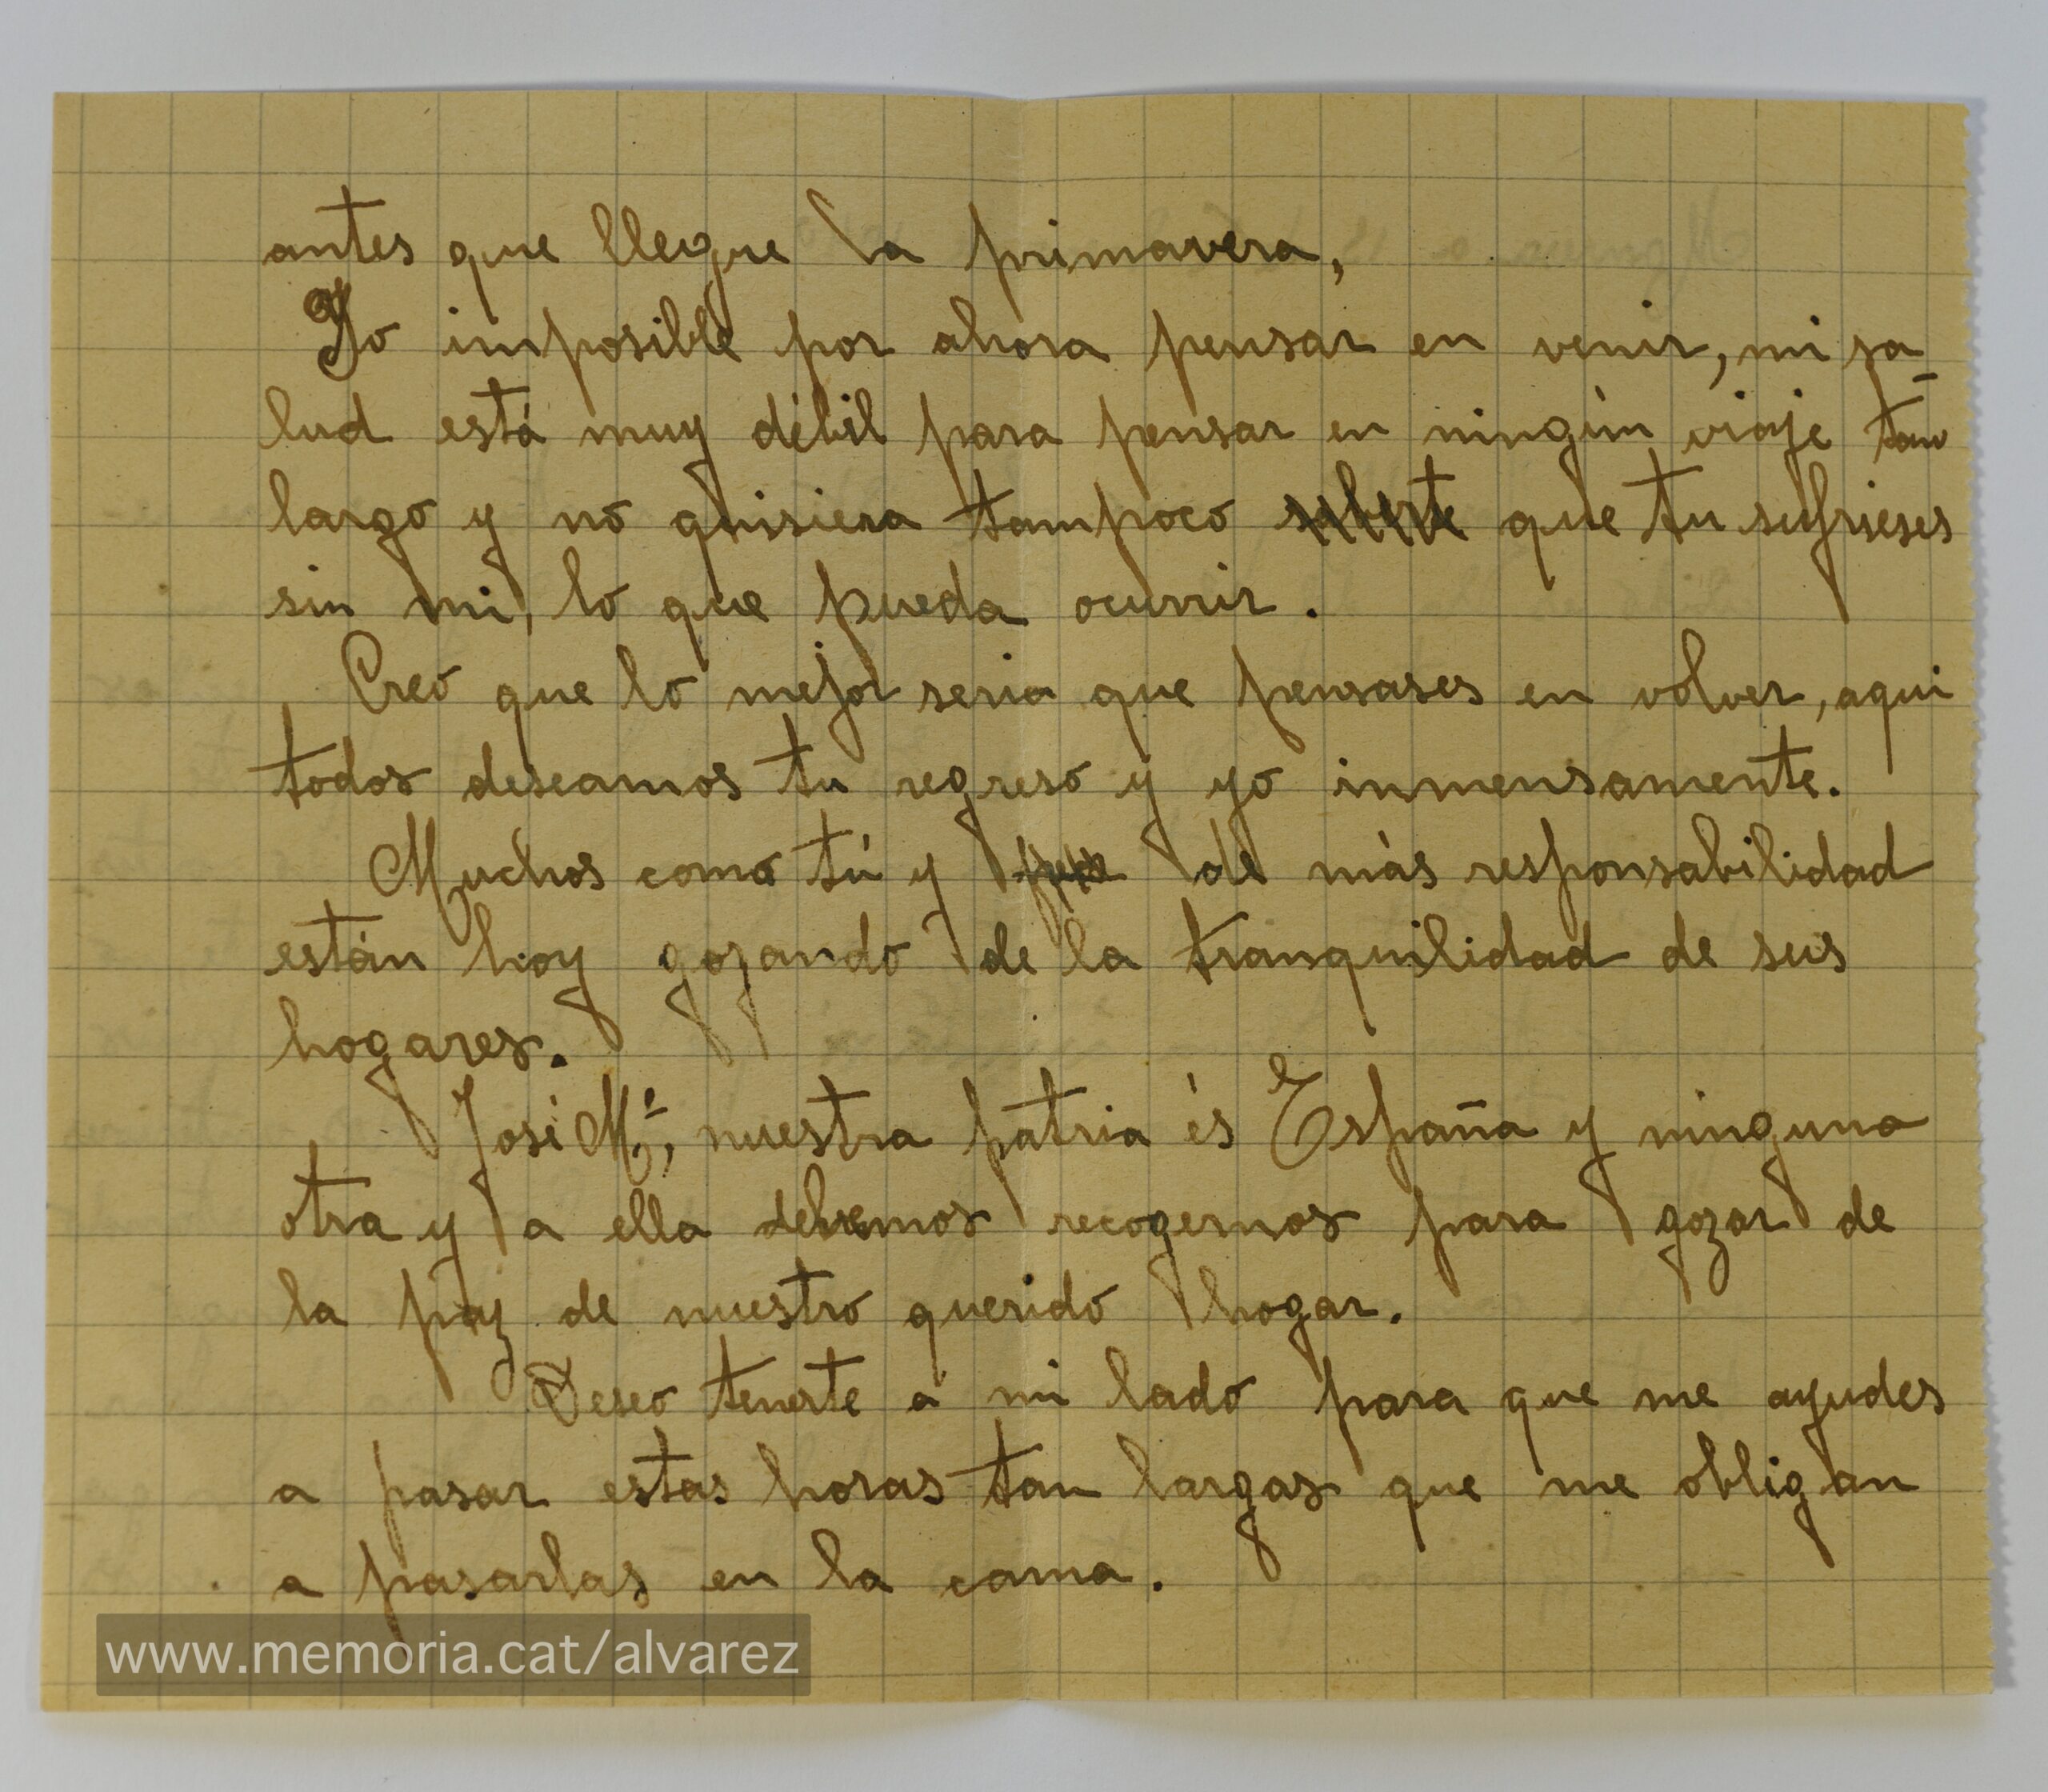 antes que llegue la primavera,
Yo imposible por ahora pensar en venir, mi sa-
lud está muy débil para pensar en ningún viaje tan
largo y no quisiera tampoco que tu sufrieses
sin mi, lo que pueda ocurrir.
Creo que lo mejor seria que pensases en volver, aqui
todos deseamos tu regreso y yo inmensamente.
Muchos como tú y de más responsabilidad
están hoy gozando de la tranquilidad de sus
hogares.
José Mª, nuestra patria és España y ninguna
otra y a ella debemos recogernos para gozar de
la paz de nuestro querido hogar.
Deseo tenerte a mi lado para que me ayudes
a pasar estas horas tan largas que me obligan
a pasarlas en la cama.
www.memoria.cat/alvarez